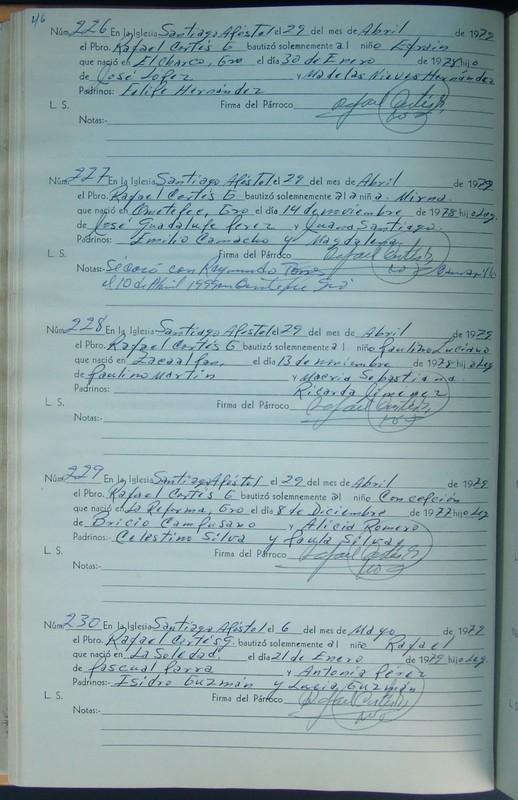 46
Núm. 226 En la Iglesia Santiago Apóstol el 29 del mes de Abril de 1979
el Pbro. Rafael Cortés G bautizó solemnemente a l niño Efraín
que nació en El Charco, Gro el día 30 de Enero de 1978 hijo
de José López y Ma de las Nieves Hernández
Padrinos: Felipe Hernández
L. S. Firma del Párroco Rafael Cortés G
Notas:-
Núm. 227 En la Iglesia Santiago Apóstol el 29 del mes de Abril de 1979
el Pbro. Rafael Cortés G bautizó solemnemente a la niña Mirna
que nació en Ometepec, Gro el día 14 de noviembre de 1978 hijo Leg.
de José Guadalupe Perez y Juana Santiago.
Padrinos: Emilio Camacho y Magdalena
L. S. Firma del Párroco Rafael Cortés G
Notas:- Se casó con Raymundo
el 10 de Abril 1999 en Ometepec Gro
Núm. 228 En la Iglesia Santiago Apóstol el 29 del mes de Abril de 1979
el Pbro. Rafael Cortés G bautizó solemnemente a l niño Paulino Luciano
que nació en el día 13 de noviembre de 1978 hijo Leg
de Paulino Martin y Macria Sebastiana.
Padrinos: Ricarda Jimenez
L. S. Firma del Párroco Rafael Cortés G
Notas:-
Núm. 229 En la Iglesia Santiago Apóstol el 29 del mes de Abril de 1979
el Pbro. Rafael Cortés G bautizó solemnemente a l niño Concepción
que nació en La Reforma, Gro el día 8 de Diciembre de 1977 hijo Leg
de Bricio Campusano y Alicia Romero
Padrinos:- Celestino Silva y Paula Silva
L. S. Firma del Párroco Rafael Cortés G
Notas:-
Núm. 230 En la Iglesia Santiago Apóstol el 6 del mes de Mayo de 1979
el Pbro. Rafael Cortés G. bautizó solemnemente al niño Rafael
que nació en La Soledad. el día 21 de Enero de 1979 hijo Leg.
de Pascual Parra y Antonia Pérez
Padrinos:- Isidro Guzmán y Lucia Guzmán
L. S. Firma del Párroco Rafael Cortés G
Notas:-